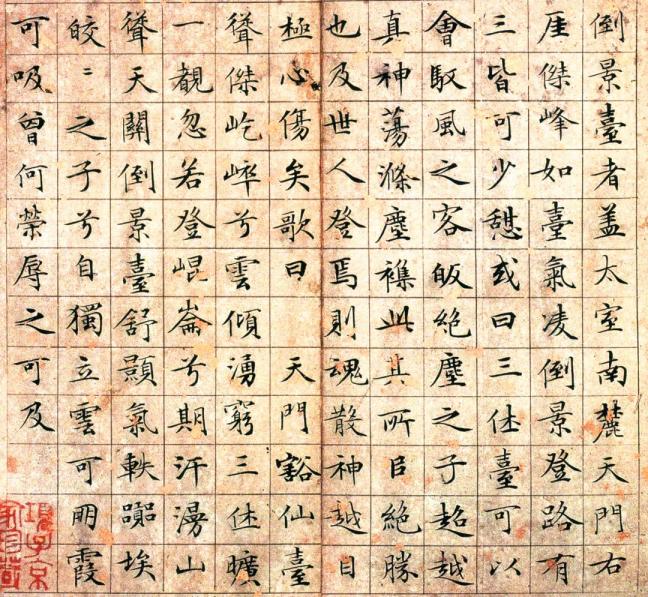 倒景臺者盖太室南麓天門右
厓傑峰如臺氣凌倒景登路有
三皆可少憇或曰三休臺可以
會馭風之客皈絶塵之子超越
真神蕩滌塵襟此其所㠯絶勝
也及世人登焉則魂散神越目
極心傷矣歌曰　天門豁仙臺
聳傑屹崪兮雲傾湧窮三休曠
一覩忽若登崐崙兮期汗漫山
聳天關倒景臺舒顥氣軼嚻埃
皎〻之子兮自獨立雲可朋霞
可吸曾何榮辱之可及
項子京
家珍藏